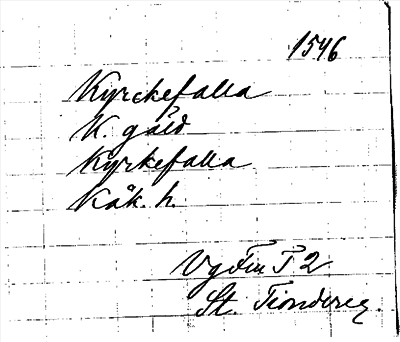 1546
Kyrckefalla
K. gäld
Kyrkefalla
Kåk. h.
Vg Fm T 2
St. Tiondereg.